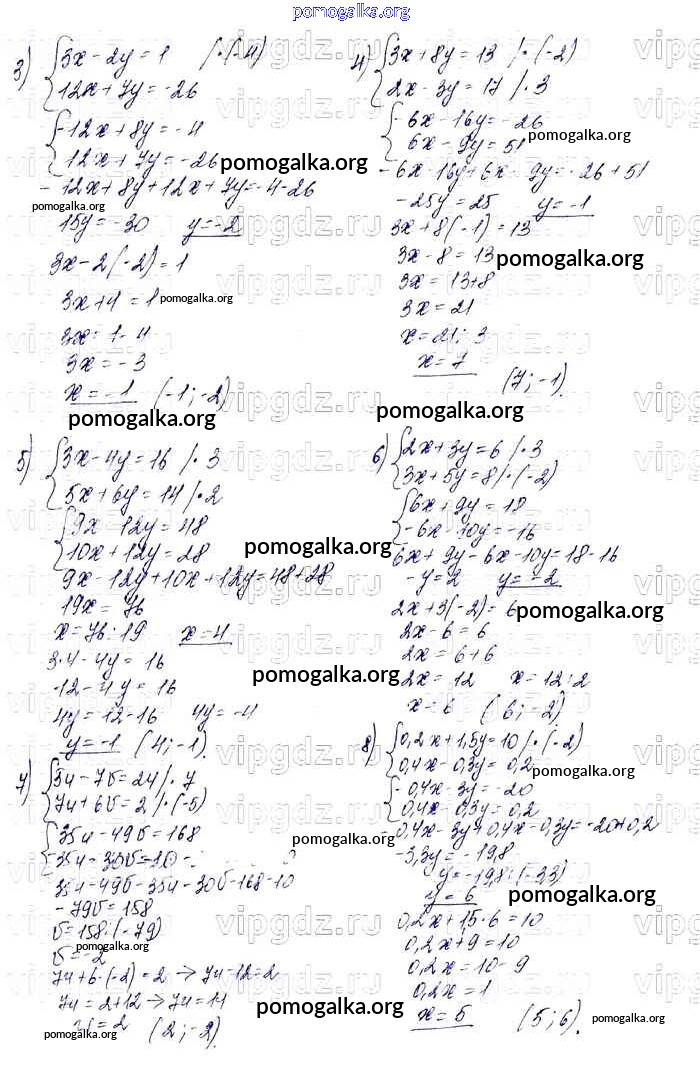 pomogalka.org
3) {3x - 2y = 1 /·(-4)
{12x + 7y = -26
{-12x + 8y = -4
{12x + 7y = -26
-12x + 8y + 12x + 7y = -4 - 26
15y = -30 y = -2
3x - 2·(-2) = 1
3x + 4 = 1
3x = 1 - 4
3x = -3
x = -1 (-1; -2)
4) {3x + 8y = 13 /·(-2)
{2x - 3y = 17 /·3
{-6x - 16y = -26
{6x - 9y = 51
-6x - 16y + 6x - 9y = -26 + 51
-25y = 25 y = -1
3x + 8(-1) = 13
3x - 8 = 13
3x = 13 + 8
3x = 21
x = 21 : 3
x = 7
(7; -1).
5) {3x - 4y = 16 /·3
{5x + 6y = 14 /·2
{9x - 12y = 48
{10x + 12y = 28
9x - 12y + 10x + 12y = 48 + 28
19x = 76
x = 76 : 19 x = 4
3·4 - 4y = 16
12 - 4y = 16
4y = 12 - 16 4y = -4
y = -1 (4; -1).
6) {2x + 3y = 6 /·3
{3x + 5y = 8 /·(-2)
{6x + 9y = 18
{-6x - 10y = -16
6x + 9y - 6x - 10y = 18 - 16
-y = 2 y = -2
2x + 3(-2) = 6
2x - 6 = 6
2x = 6 + 6
2x = 12 x = 12 : 2
x = 6 (6; -2).
7) {5u - 7v = 24 /·7
{7u + 6v = 2 /·(-5)
{35u - 49v = 168
{-35u - 30v = -10
35u - 49v - 35u - 30v = 168 - 10
-79v = 158
v = 158 : (-79)
v = -2
7u + 6·(-2) = 2 → 7u - 12 = 2
7u = 2 + 12 → 7u = 14
u = 2 (2; -2).
8) {0,2x + 1,5y = 10 /·(-2)
{0,4x - 0,3y = 0,2
{-0,4x - 3y = -20
{0,4x - 0,3y = 0,2
-0,4x - 3y + 0,4x - 0,3y = -20 + 0,2
-3,3y = -19,8
y = -19,8 : (-3,3)
y = 6
0,2x + 1,5·6 = 10
0,2x + 9 = 10
0,2x = 10 - 9
0,2x = 1
x = 5 (5; 6).